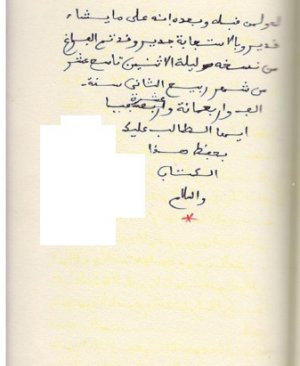 لحول من قبله وبعده انه على ما يشاء
قدير وبالاستجابة جدير وقد تم الفراغ
من نسخه ليلة الاثنين تاسع عشر
من شهر ربيع الثاني سنة
الف واربعمائة
ايها الطالب عليك
بحفظ هذا
الكتاب
والسلام